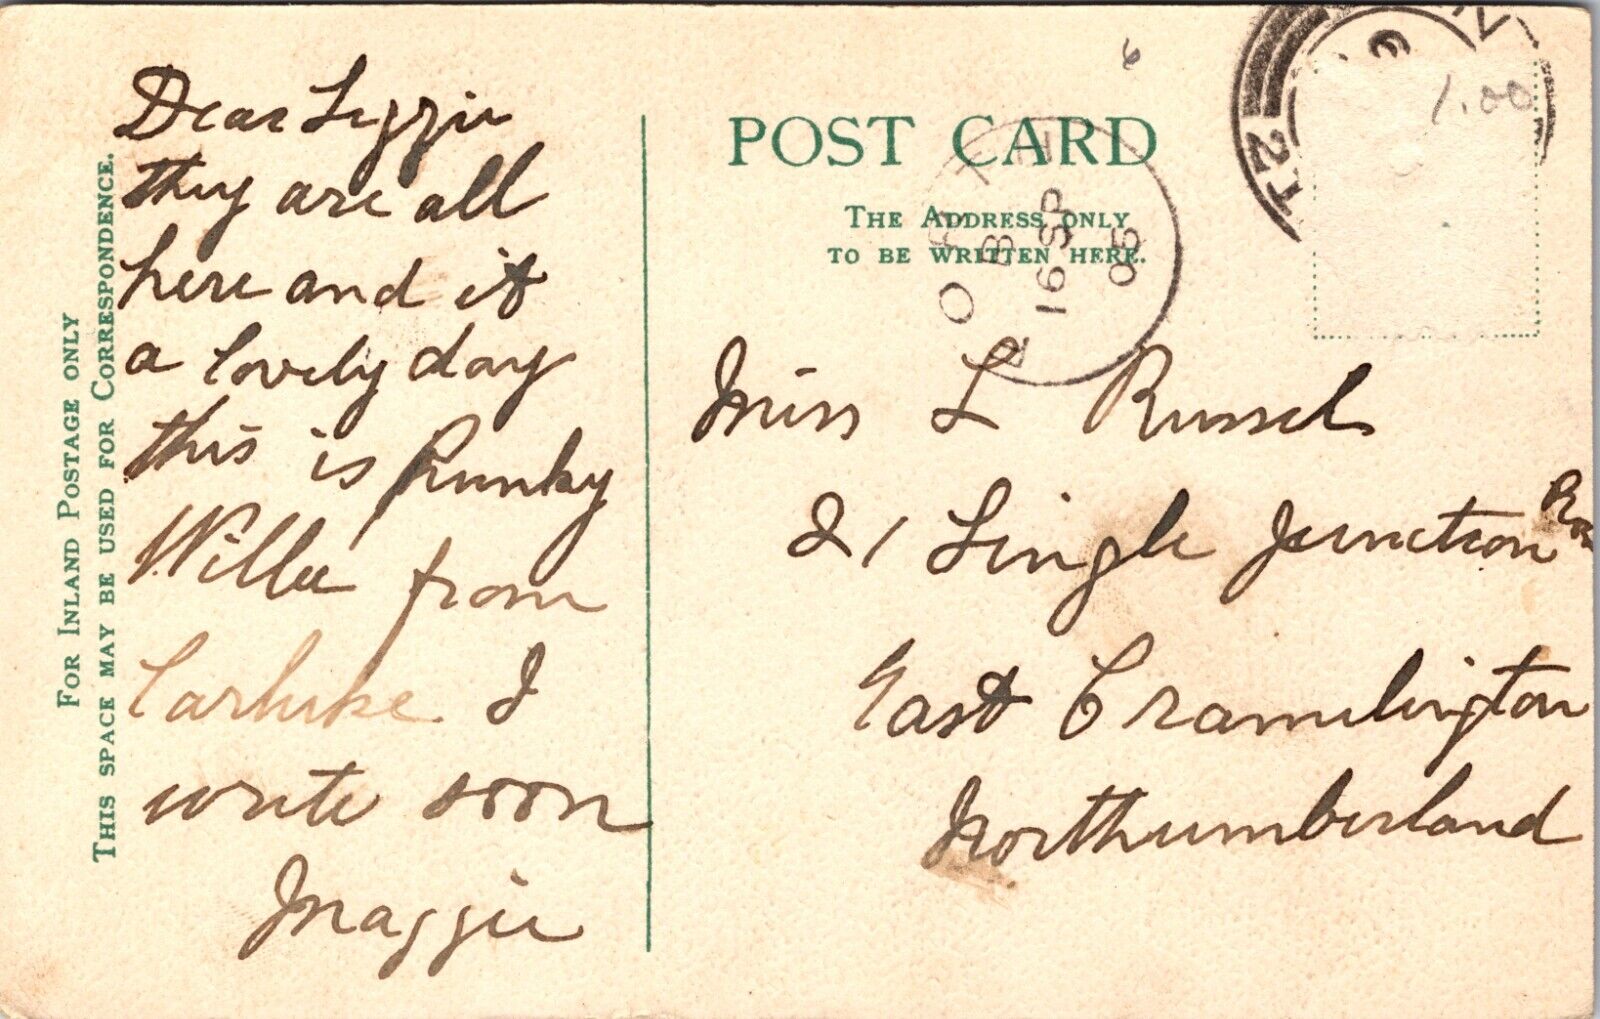 FOR INLAND POSTAGE ONLY
THIS SPACE MAY BE USED FOR CORRESPONDENCE.
Dear Lizzie
they are all
here and it
a lovely day
this is Punky
Willie from
Carluke I
write soon
Maggie
POST CARD
THE ADDRESS ONLY
TO BE WRITTEN HERE.
B
16 SP
05
6
1.00
Miss L Russel
21 Single Junction Row
East Cramelington
Northumberland